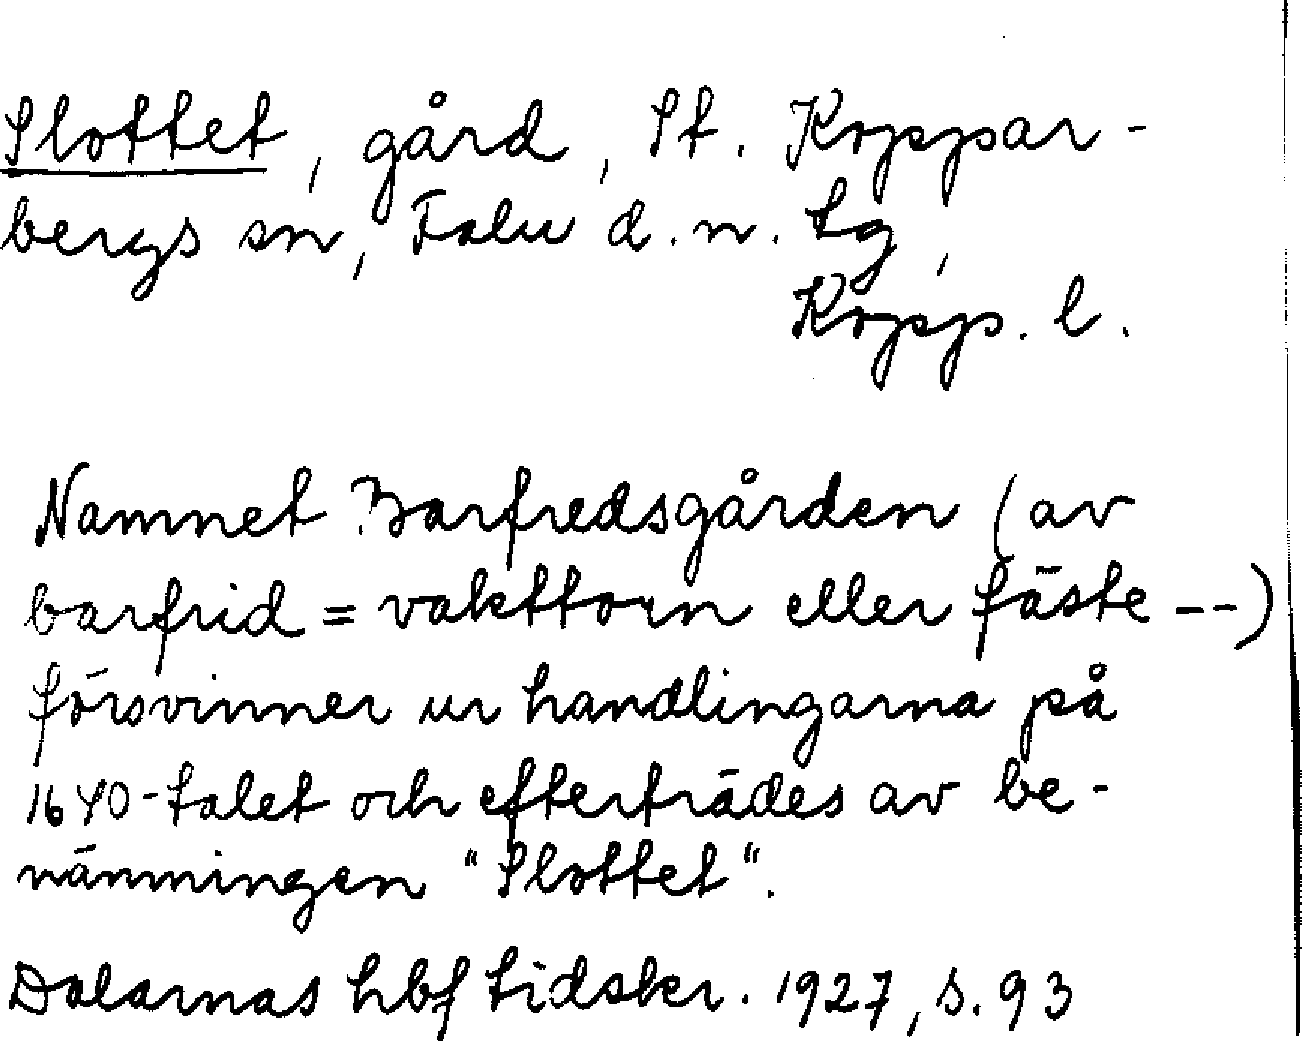 Slottet, gård, St. Koppar-
bergs sn, Falu d. n. tg,
Kopp. l.
Namnet Barfredsgården (av
barfrid = vakttorn eller fäste --)
försvinner ur handlingarna på
1640-talet och efterträdes av be-
nämningen "Slottet".
Dalarnas hbf tidskr. 1927, s. 93